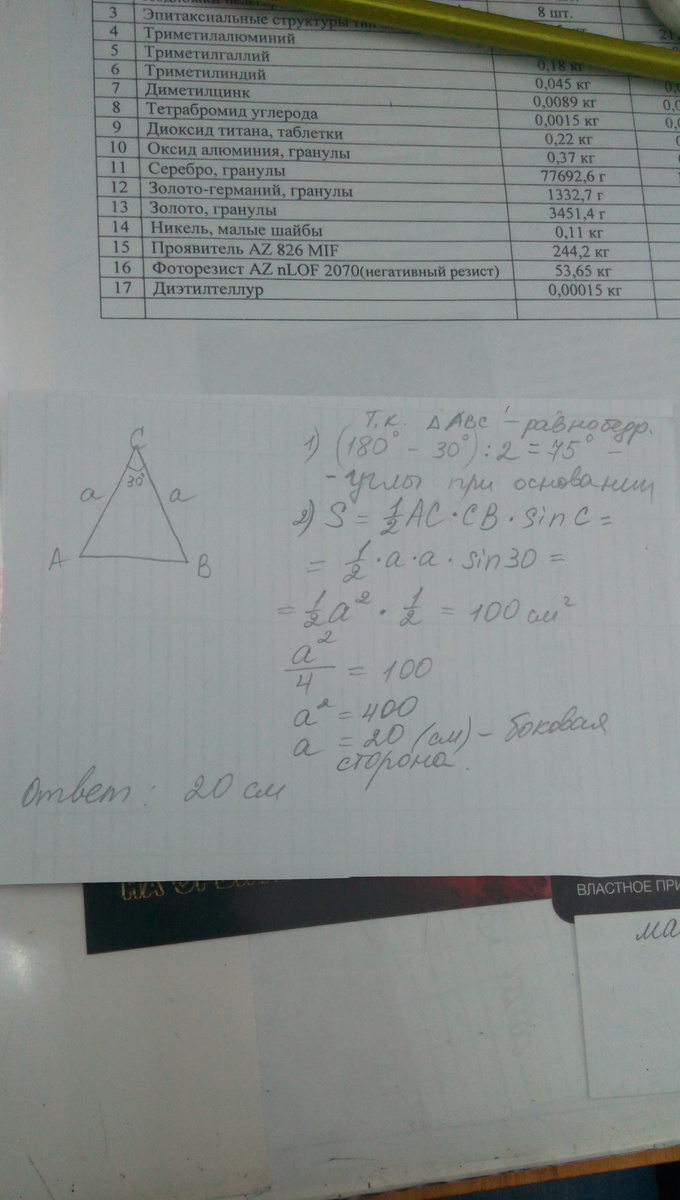 3 Эпитаксиальные структуры 8 шт.
4 Триметилалюминий
5 Триметилгаллий 0,18 кг
6 Триметилиндий 0,045 кг
7 Диметилцинк 0,0089 кг
8 Тетрабромид углерода 0,0015 кг
9 Диоксид титана, таблетки 0,22 кг
10 Оксид алюминия, гранулы 0,37 кг
11 Серебро, гранулы 77692,6 г
12 Золото-германий, гранулы 1332,7 г
13 Золото, гранулы 3451,4 г
14 Никель, малые шайбы 0,11 кг
15 Проявитель AZ 826 MIF 244,2 кг
16 Фоторезист AZ nLOF 2070(негативный резист) 53,65 кг
17 Диэтилтеллур 0,00015 кг
C
30°
a a
A B
Т.к. ΔABC - равнобедр.
1) (180° - 30°) : 2 = 75° -
- углы при основании
2) S = 1/2 AC · CB · sin C =
= 1/2 · a · a · sin30 =
= 1/2 a² · 1/2 = 100 см²
a²/4 = 100
a² = 400
a = 20 (см) - боковая
сторона.
Ответ: 20 см
НА
ВЛАСТНОЕ ПРИ
ма